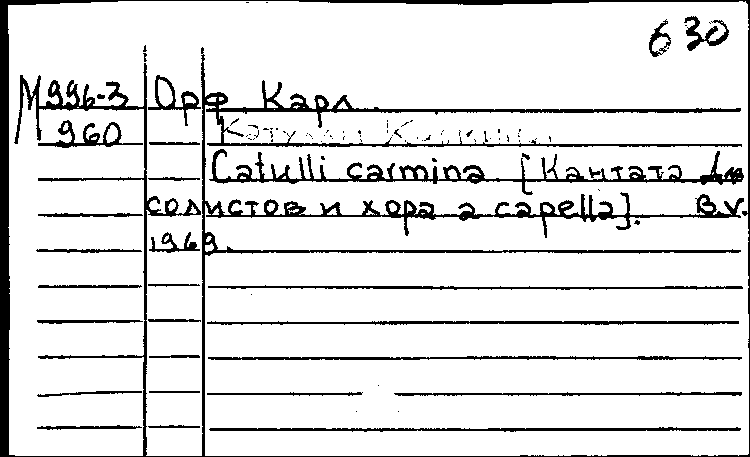 630
М996-3 Орф, Карл.
960
Catulli carmina. [Кантата для
солистов и хора a capella]. B.V.
1969.